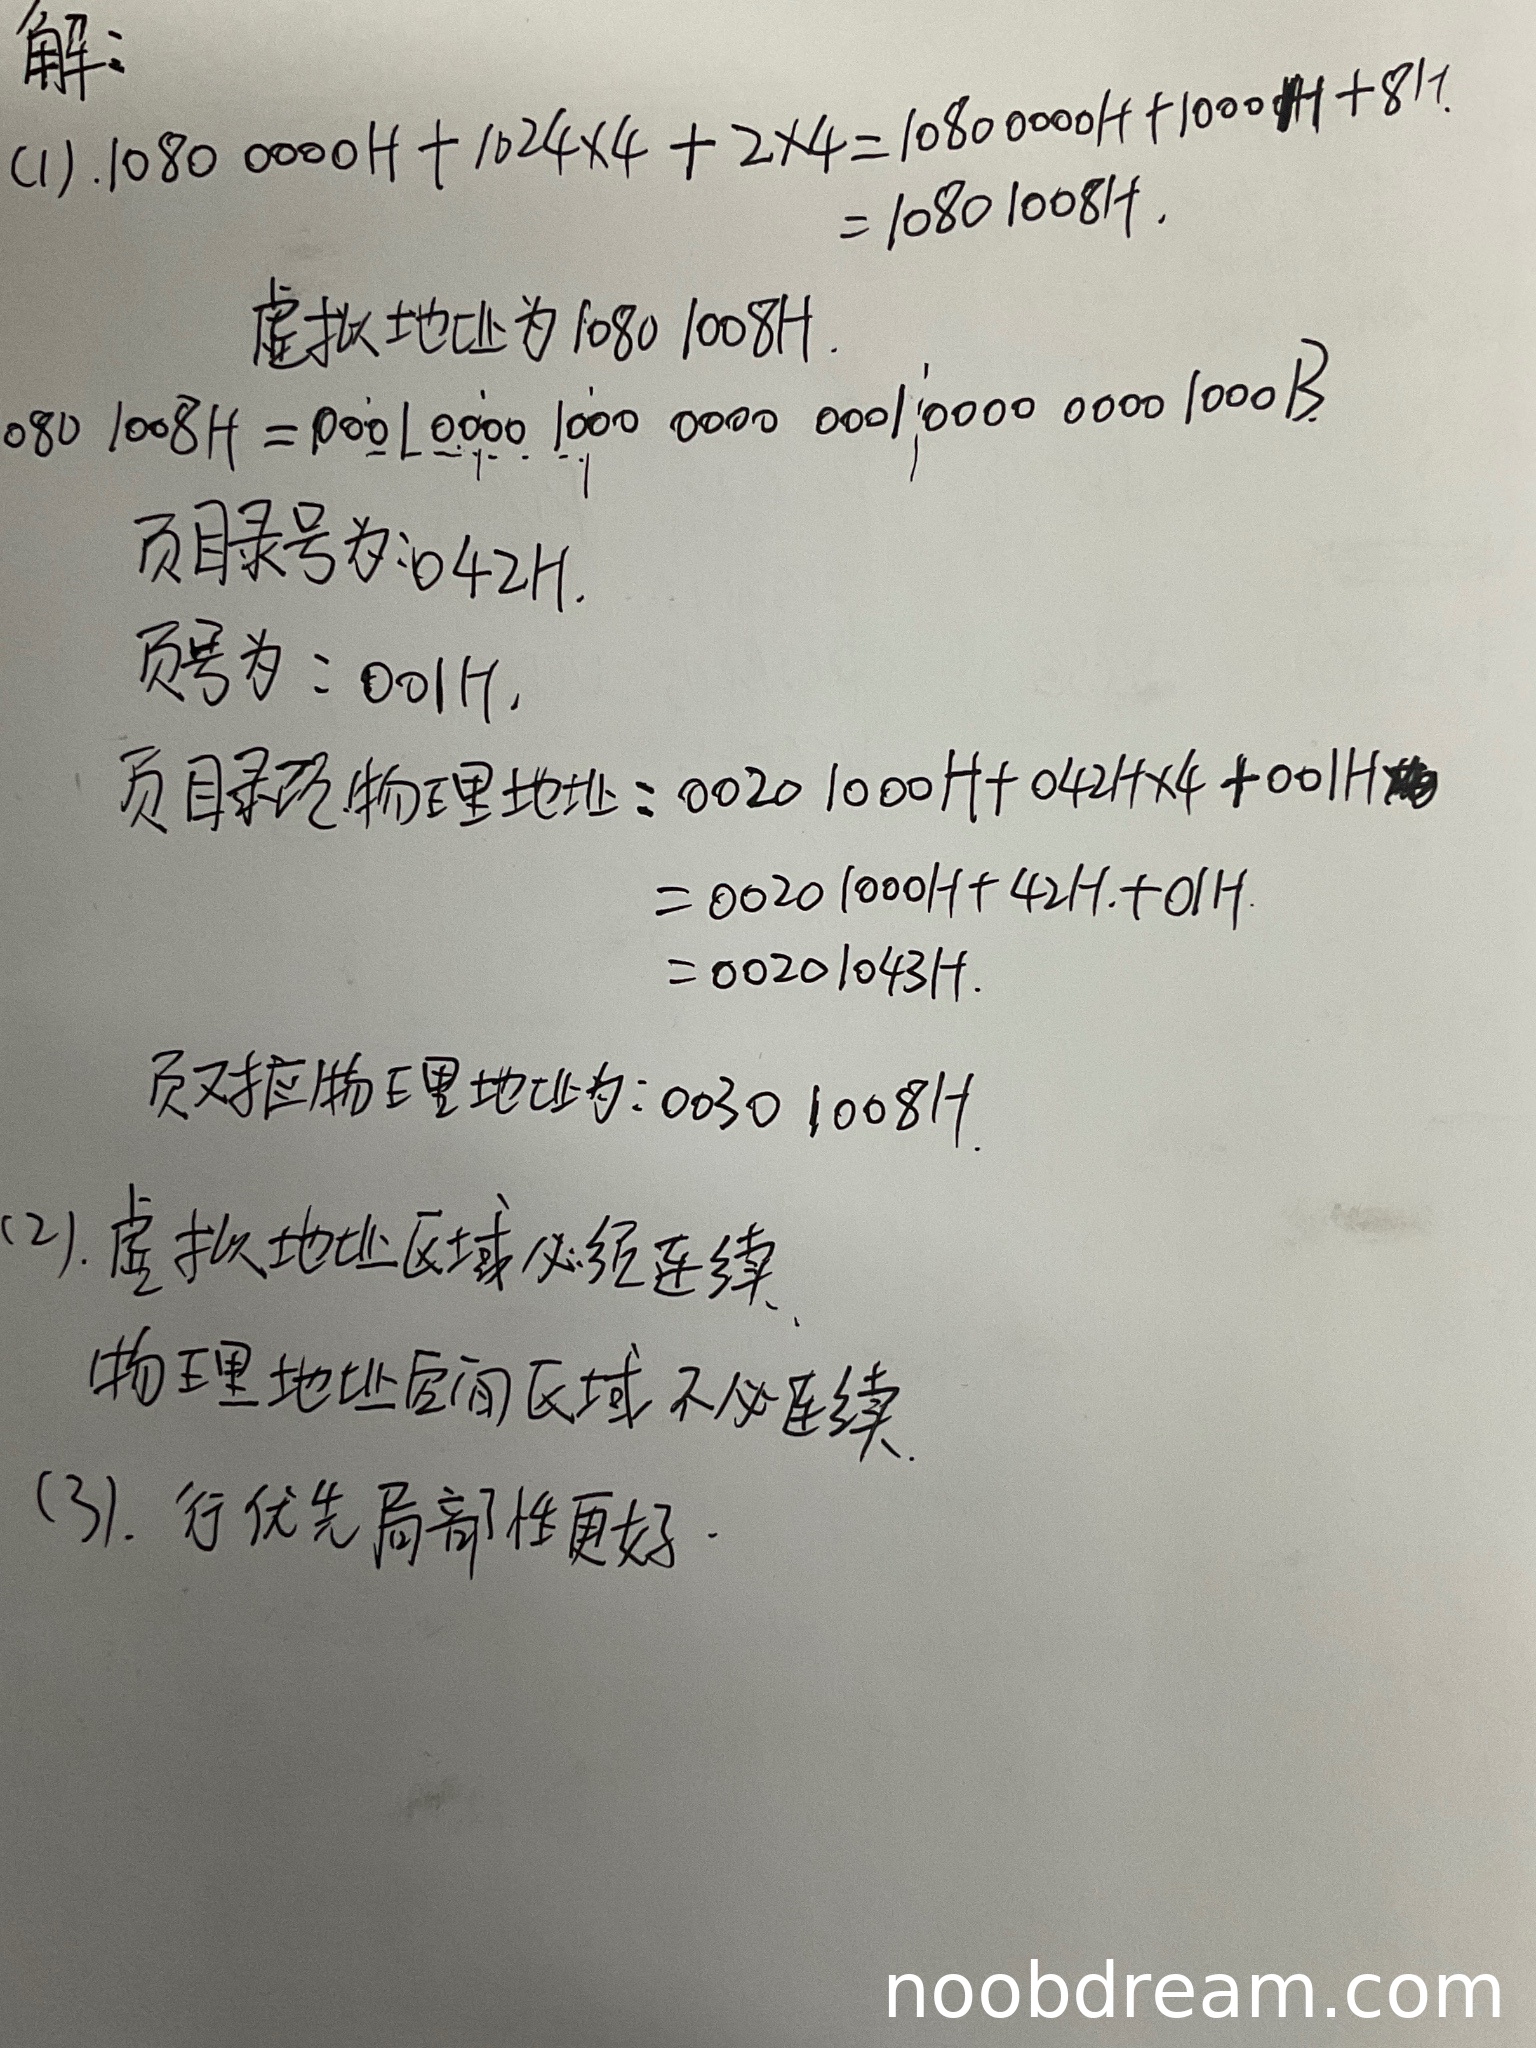 解:
(1). 1080 0000H + 1024×4 + 2×4 = 1080 0000H + 1000H + 8H.
= 1080 1008H.
虚拟地址为 1080 1008H.
080 1008H = 0001 0000 1000 0000 0001 0000 0000 1000B.
页目录号为: 042H.
页号为: 001H.
页目录项物理地址: 0020 1000H + 042H×4 + 001H
= 0020 1000H + 42H. + 01H.
= 0020 1043H.
页对应物理地址为: 0030 1008H.
(2). 虚拟地址区域必须连续、
物理地址空间区域不必连续.
(3). 行优先局部性更好.
noobdream.com